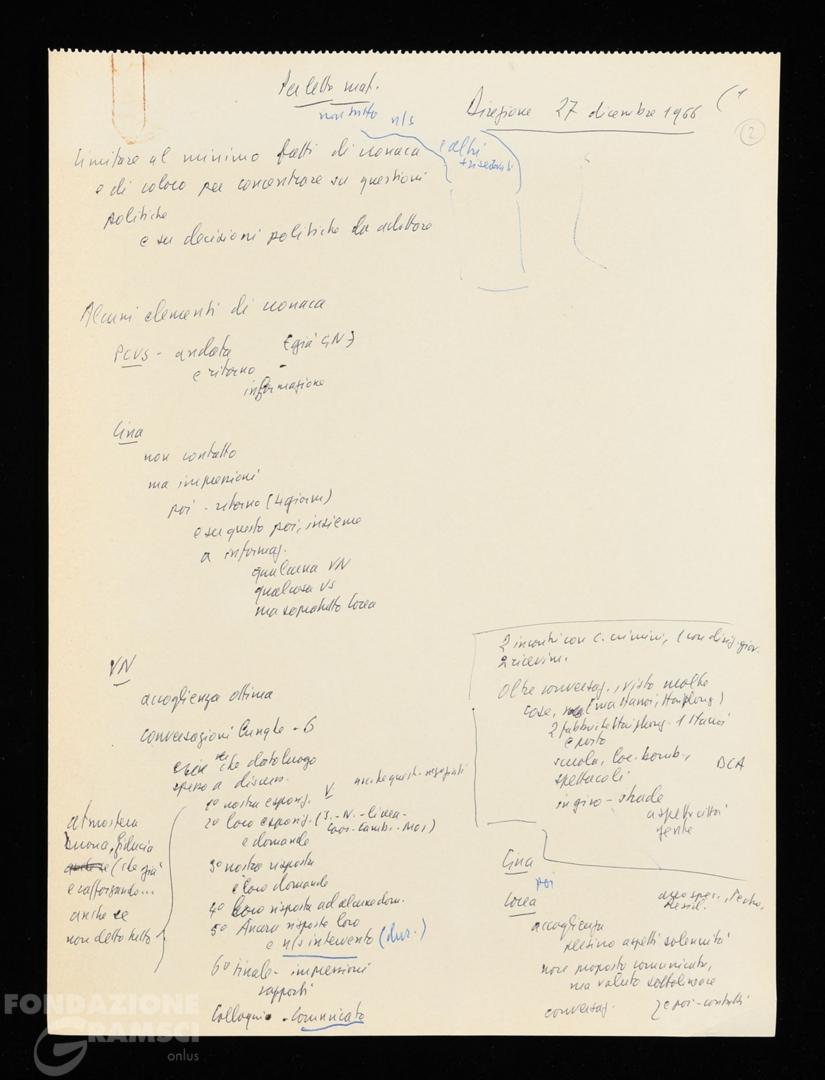 Direzione 27 dicembre 1966
(1
2
non tutto n/s
e altri
limitare al minimo fatti di cronaca
e di colore per concentrare su questioni
politiche
e su decisioni politiche da adottare
Alcuni elementi di cronaca
PCUS - andata
e ritorno
informazione
Cina
non contatto
ma impressioni
poi - ritorno (4 giorni)
e su questo poi, insieme
a informaz.
qualcosa VN
qualcosa US
ma soprattutto Corea
VN
accoglienza ottima
conversazioni lunghe - 6
che dato luogo
spesso a discuss.
1º nostra esposiz.
2º loro esposiz. (S. - N. - linea -
Laos - Camb. - Noi)
e domande
3º nostra risposta
e loro domande
4º loro risposta ad alcune dom.
5º Ancora risposte loro
e n/s intervento (dur.)
6º finale - impressioni
rapporti
Colloqui - Comunicato
atmosfera
buona, fiducia
(che già
e rafforzando...
anche se
non detto tutto
2 incontri con C. Minh,
2 ricevim.
Oltre conversaz., visto molte
cose, (ma Hanoi, Haiphong)
2 fabbriche Haiphong - 1 Hanoi
e porto
scuola, loc. bomb., DCA
spettacoli
in giro - strade
aspetti città
gente
Cina
poi
Corea
accoglienza
persino aspetti solennità
non proposto comunicato,
ma voluto sottolineare
conversaz.
e poi - contatti
FONDAZIONE
GRAMSCI
onlus